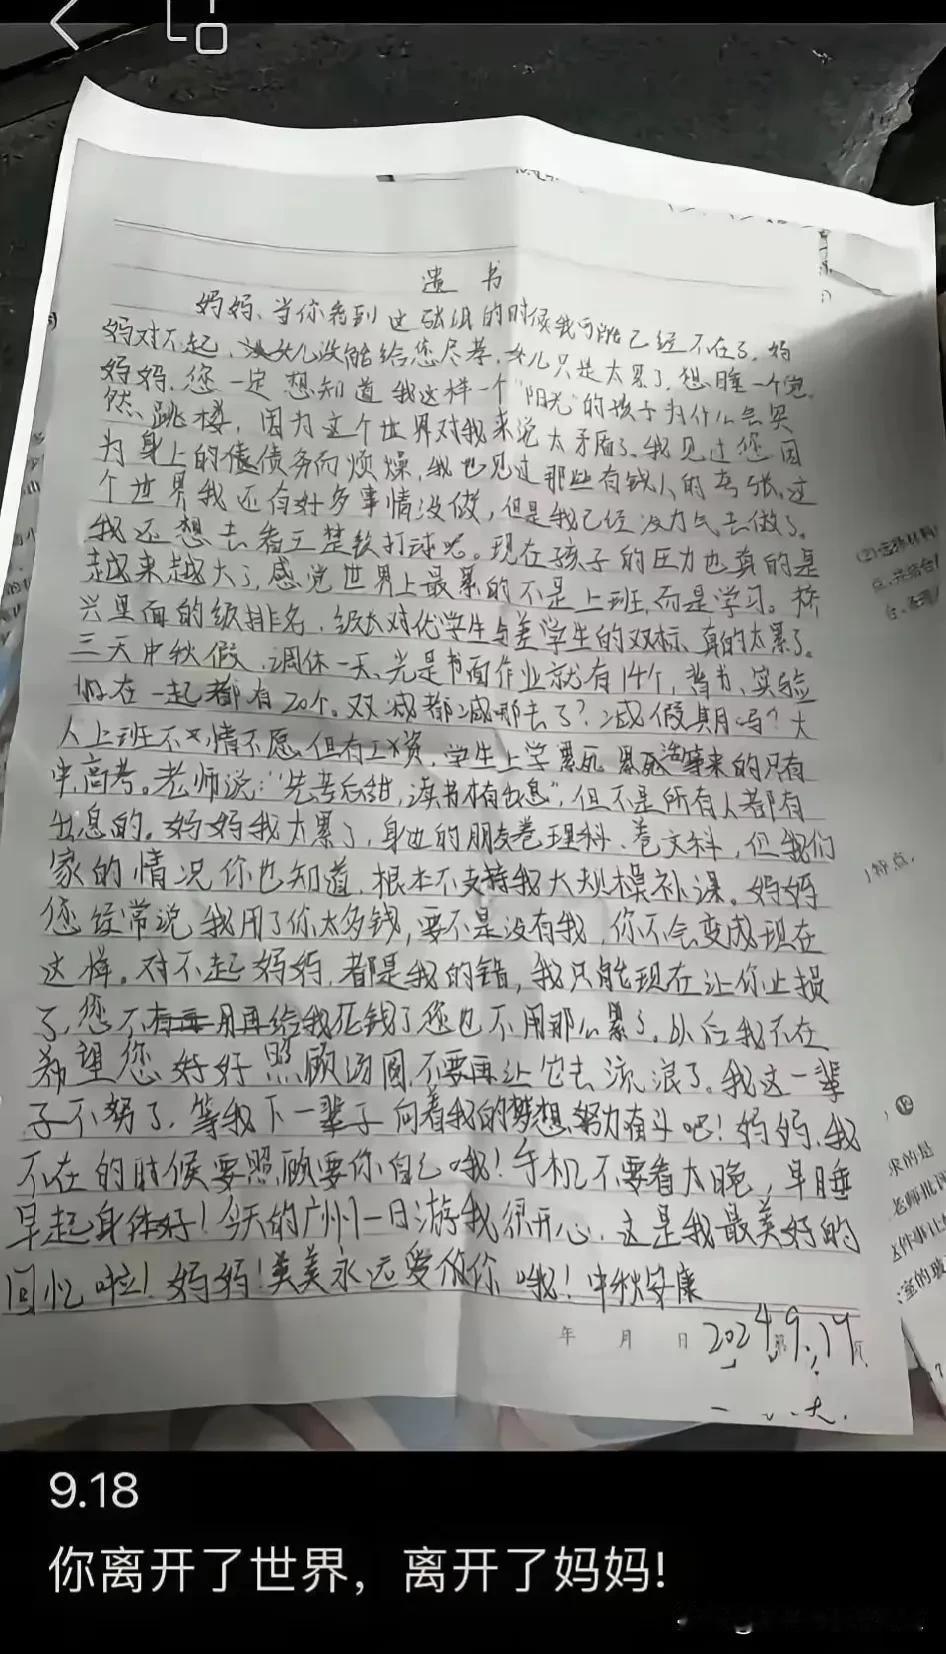 遗书
妈妈、当你看到这张纸的时候我可能已经不在了，妈
妈对不起，女儿没能给您尽孝，女儿只是太累了，想睡一个觉
妈妈，您一定想知道我这样一个“阳光”的孩子为什么会突
然跳楼，因为这个世界对我来说太矛盾了、我见过您因
为身上的债务而烦燥，我也见过那些有钱人的夸张，这
个世界我还有好多事情没做，但是我已经没力气去做了。
我还想去看王楚钦打球呢。现在孩子的压力也真的是
越来越大了，感觉世界上最累的不是上班，而是学习。
里面的级排名，级大对优学生与差学生的双标，真的太累了。
三天中秋假，调休一天、光是书面作业就有14个，背书、实验
加在一起都有20个。双减都减哪去了？减假期吗？大
人上班不情不愿但有工资，学生上学累死累死等来的只有
中高考。老师说：“先苦后甜，读书才有出息”，但不是所有人都有
出息的。妈妈我太累了，身边的朋友卷理科、卷文科，但我们
家的情况你也知道，根本不支持我大规模补课。妈妈
您经常说我用了你太多钱，要不是没有我，你不会变成现在
这样。对不起妈妈，都是我的错，我只能现在让你止损
了，您不用再给我花钱了您也不用那么累了。以后我不在
希望您好好照顾汤圆，不要再让它去流浪了。我这一辈
子不努了，等我下一辈子向着我的梦想努力奋斗吧！妈妈，我
不在的时候要照顾要你自己哦！手机不要看太晚，早睡
早起身体好！今天的广州一日游我很开心，这是我最美好的
回忆啦！妈妈！美美永远爱你哦！中秋安康
年 月 日 2024.9.17
(2)
特点，
求的是
老师批评
这件事让
室的玻
9.18
你离开了世界，离开了妈妈！